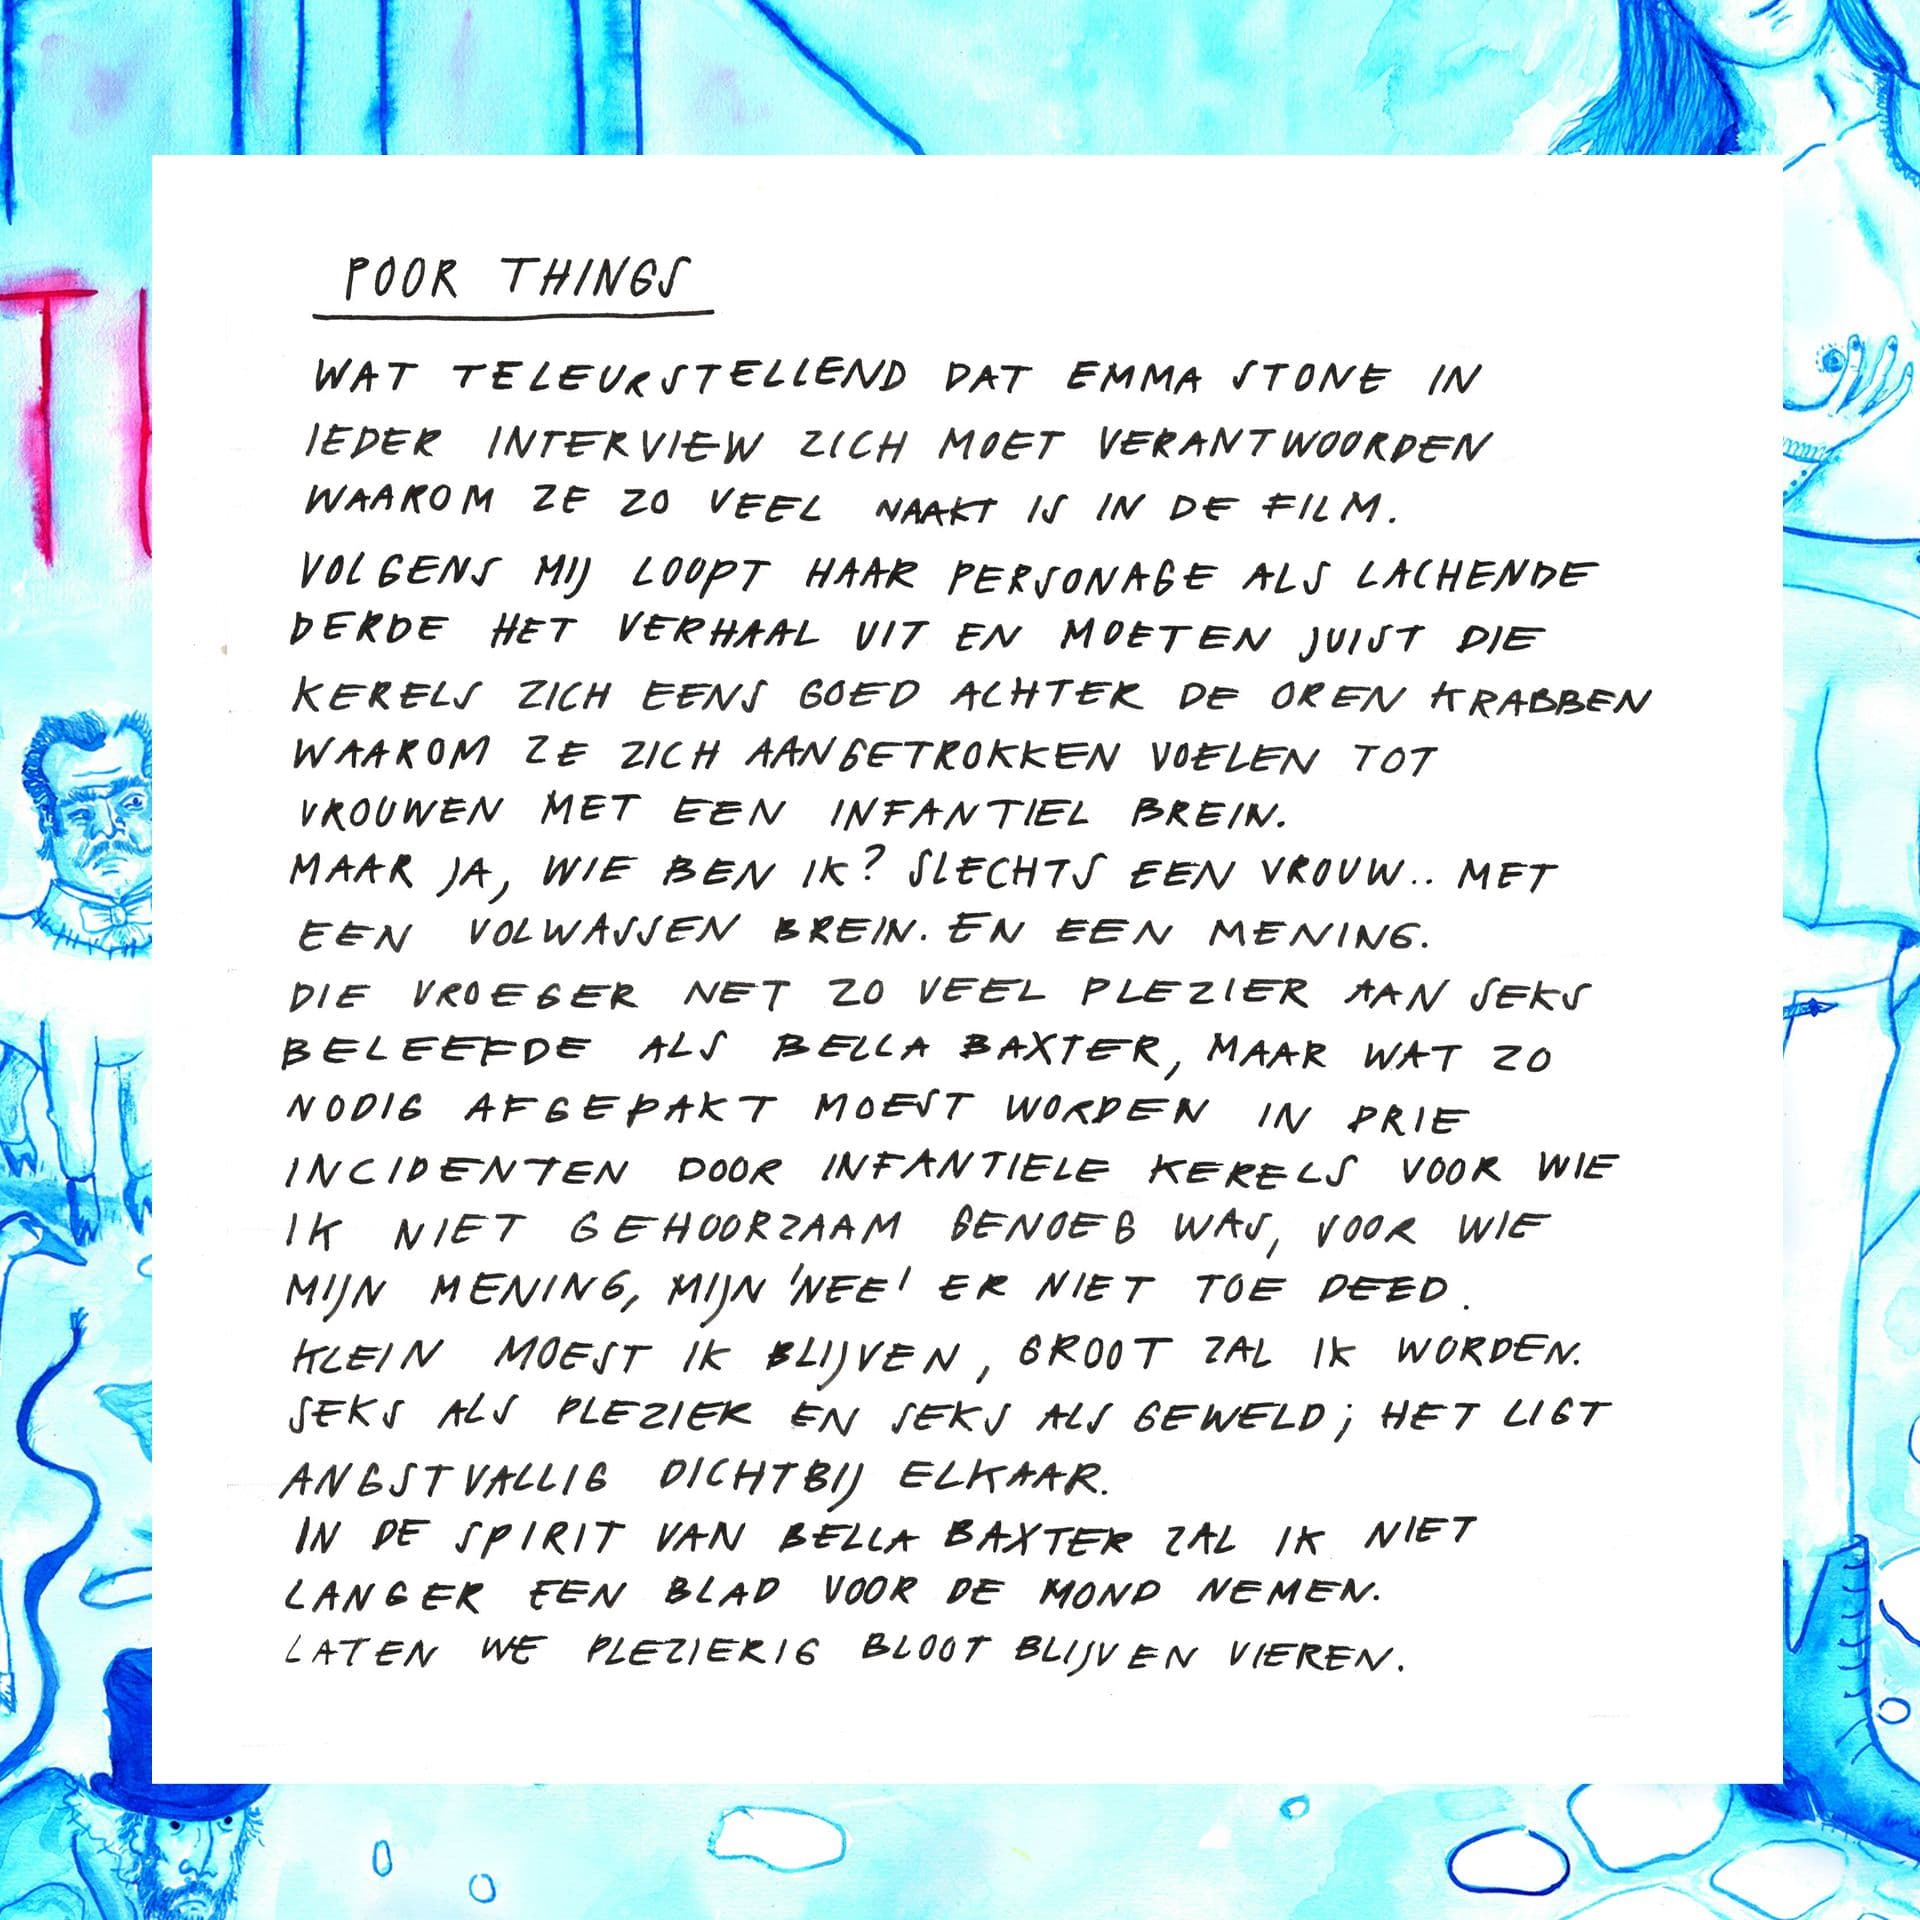 POOR THINGS
WAT TELEURSTELLEND DAT EMMA STONE IN
IEDER INTERVIEW ZICH MOET VERANTWOORDEN
WAAROM ZE ZO VEEL NAAKT IS IN DE FILM.
VOLGENS MIJ LOOPT HAAR PERSONAGE ALS LACHENDE
DERDE HET VERHAAL UIT EN MOETEN JUIST DIE
KERELS ZICH EENS GOED ACHTER DE OREN KRABBEN
WAAROM ZE ZICH AANGETROKKEN VOELEN TOT
VROUWEN MET EEN INFANTIEL BREIN.
MAAR JA, WIE BEN IK? SLECHTS EEN VROUW.. MET
EEN VOLWASSEN BREIN. EN EEN MENING.
DIE VROEGER NET ZO VEEL PLEZIER AAN SEKS
BELEEFDE ALS BELLA BAXTER, MAAR WAT ZO
NODIG AFGEPAKT MOEST WORDEN IN DRIE
INCIDENTEN DOOR INFANTIELE KERELS VOOR WIE
IK NIET GEHOORZAAM GENOEG WAS, VOOR WIE
MIJN MENING, MIJN 'NEE' ER NIET TOE DEED.
KLEIN MOEST IK BLIJVEN, GROOT ZAL IK WORDEN.
SEKS ALS PLEZIER EN SEKS ALS GEWELD; HET LIGT
ANGSTVALLIG DICHTBIJ ELKAAR.
IN DE SPIRIT VAN BELLA BAXTER ZAL IK NIET
LANGER EEN BLAD VOOR DE MOND NEMEN.
LATEN WE PLEZIERIG BLOOT BLIJVEN VIEREN.